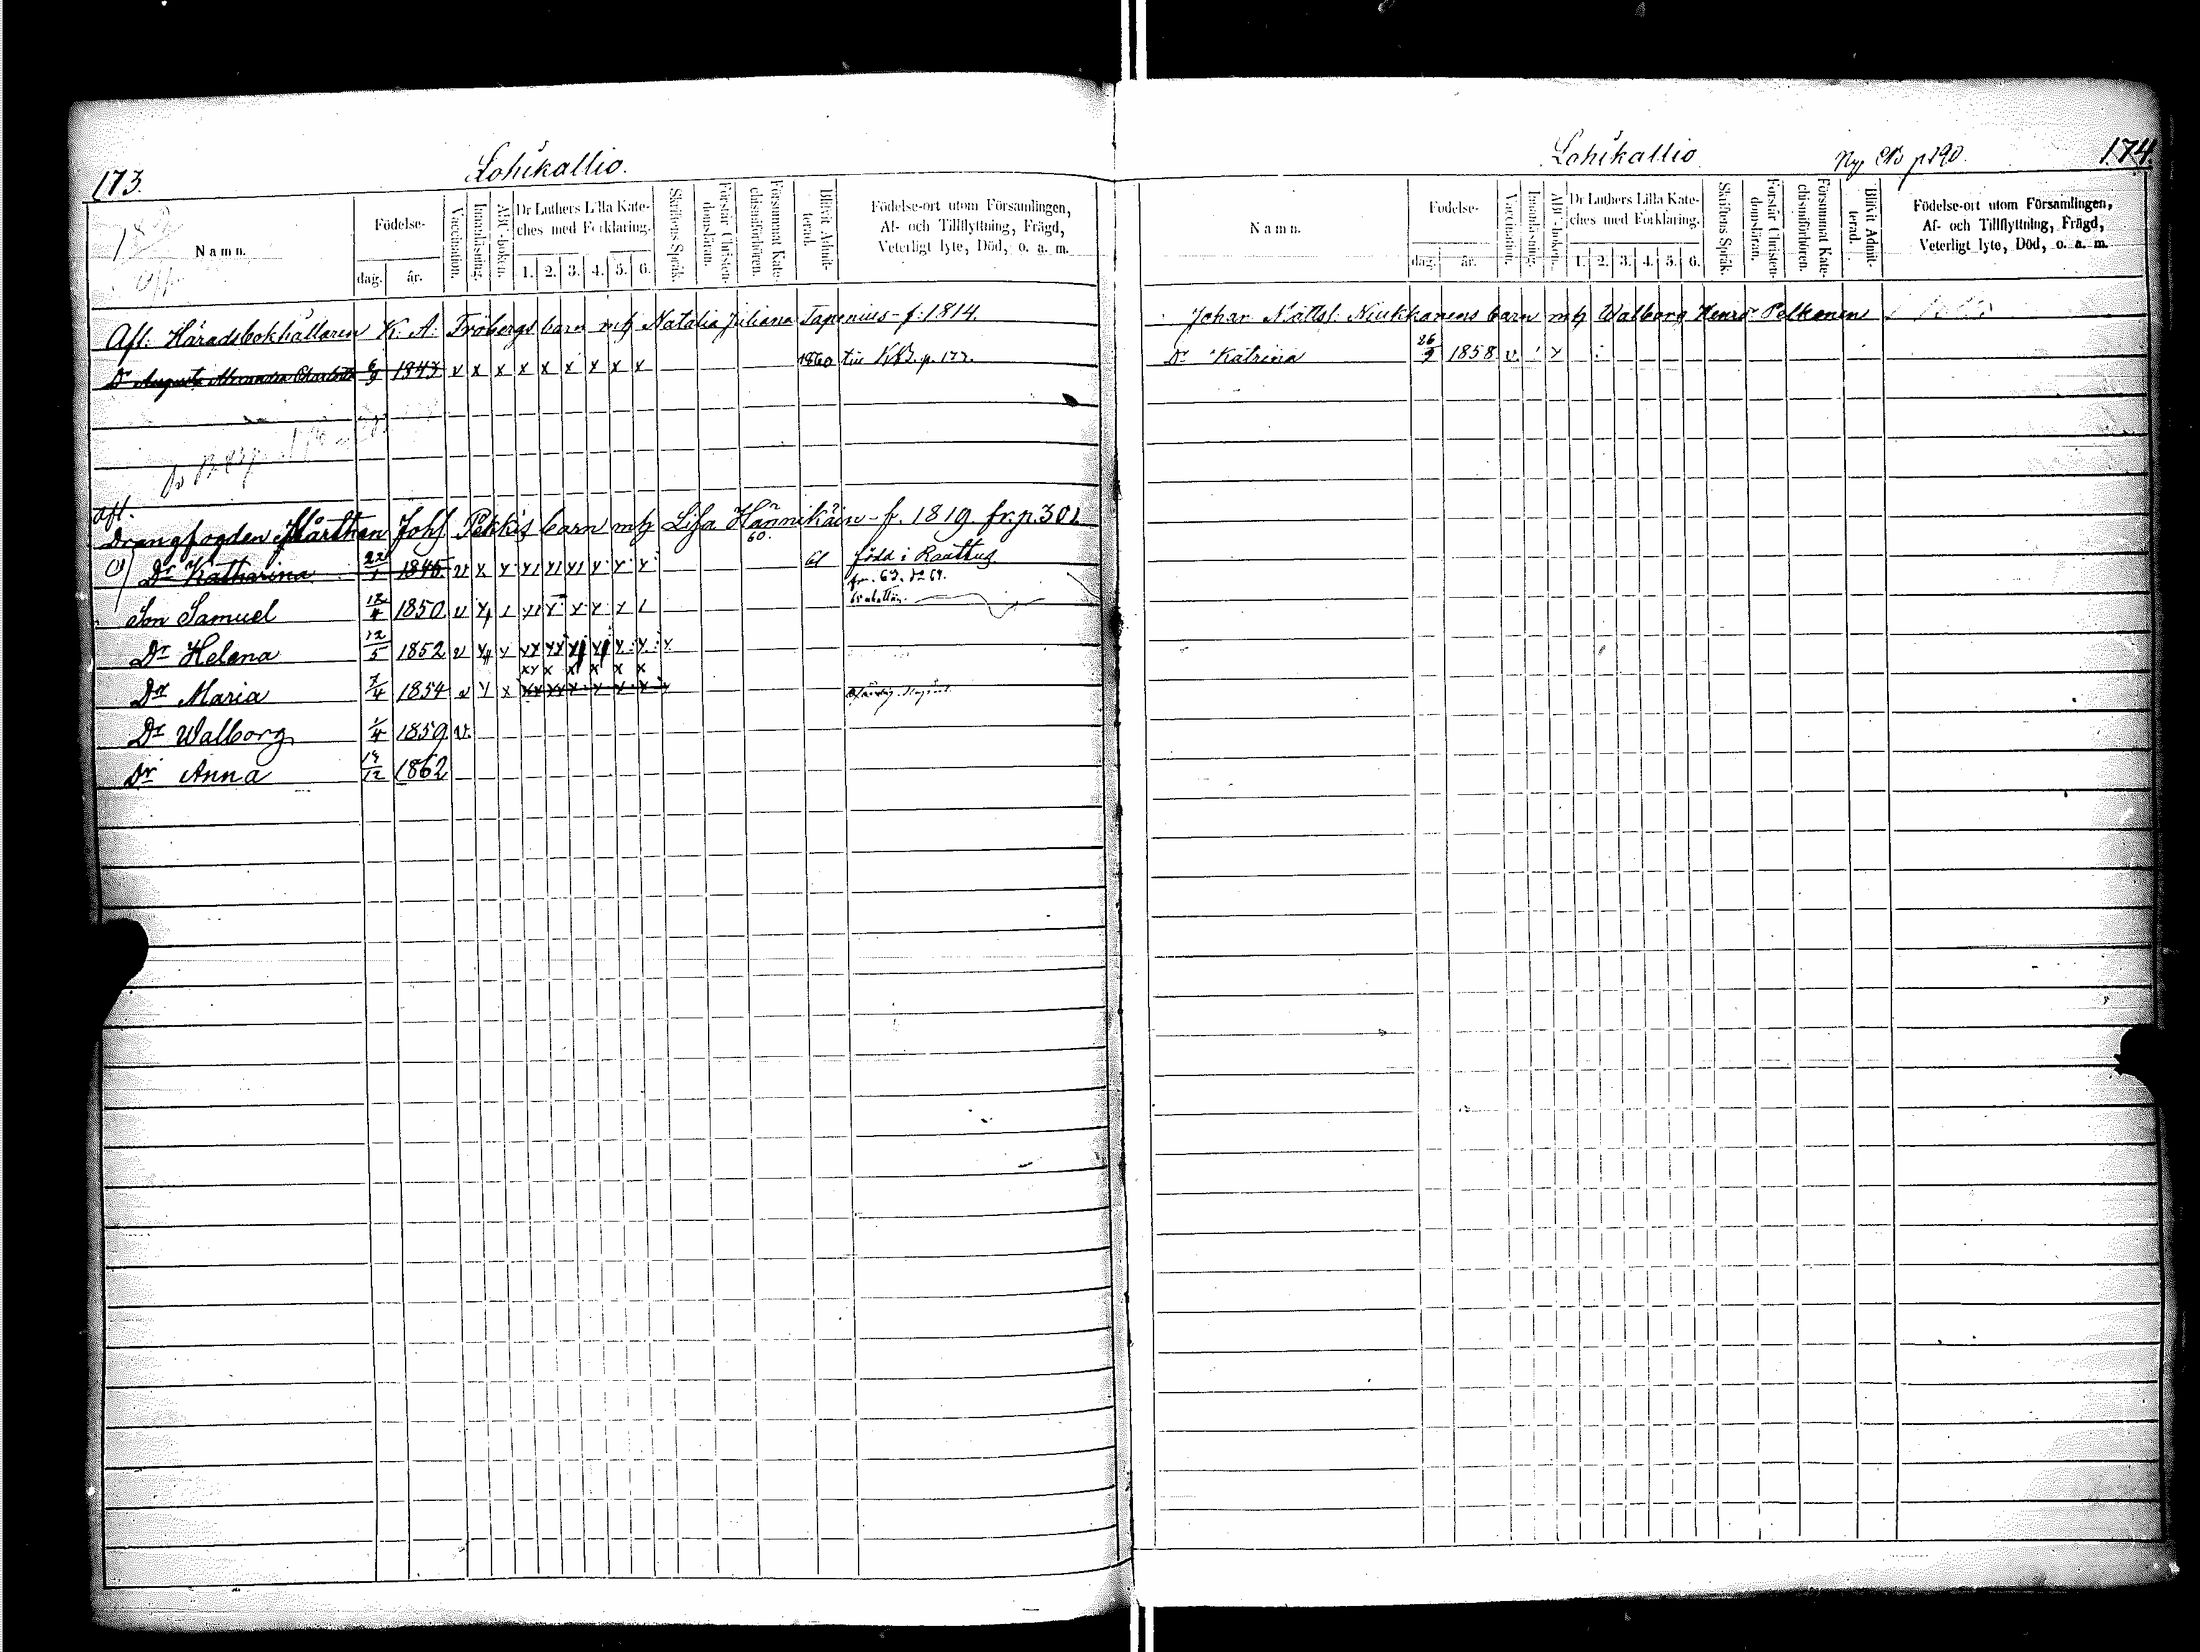 173.
Lohikallio.
Namn.
Födelse-
dag.
år.
Vaccination.
Innanläsning.
ABC-boken.
Dr Luthers Lilla Kate-
ches med Förklaring.
1. 2. 3. 4. 5. 6.
Skriftens Språk.
Förstår Christen-
domsläran.
Försummat Kate-
chismiförhören.
Blifvit Admit-
terad.
Födelse-ort utom Församlingen,
Af- och Tillflyttning, Frägd,
Veterligt lyte, Död, o. a. m.
Afl. Häradsbokhållaren K. A. Fröbergs barn m/h Natalia Juliana Tapenius - f. 1814
Dr Augusta Alexandra Charlotta 6/9 1843 v x x x x x x x x 1860 till KB. p. 177.
Afl.
Drängfogden Mårthen Johs Pekkis barn m/h Lisa Hännikäin - f. 1819. fr. p. 301
60.
Dr Katharina 22/1 1846 v x x x1 x1 x1 x x x 61 född i Rauttus
Son Samuel 13/4 1850 v
Dr Helena 12/5 1852 v
Dr Maria 7/4 1854 v x x
Dr Walborg 1/4 1859 v.
Dr Anna 14/12 1862
Lohikallio
Ny CB p 190.
174
Namn.
Födelse-
dag.
år.
Vaccination.
Innanläsning.
ABC-boken.
Dr Luthers Lilla Kate-
ches med Förklaring.
1. 2. 3. 4. 5. 6.
Skriftens Språk.
Förstår Christen-
domsläran.
Försummat Kate-
chismiförhören.
Blifvit Admit-
terad.
Födelse-ort utom Församlingen,
Af- och Tillflyttning, Frägd,
Veterligt lyte, Död, o. a. m.
Johan Mattss. Niukkanens barn m/h Walborg Henrsr Pelkonen
Dr Katrina 26/9 1858 v.